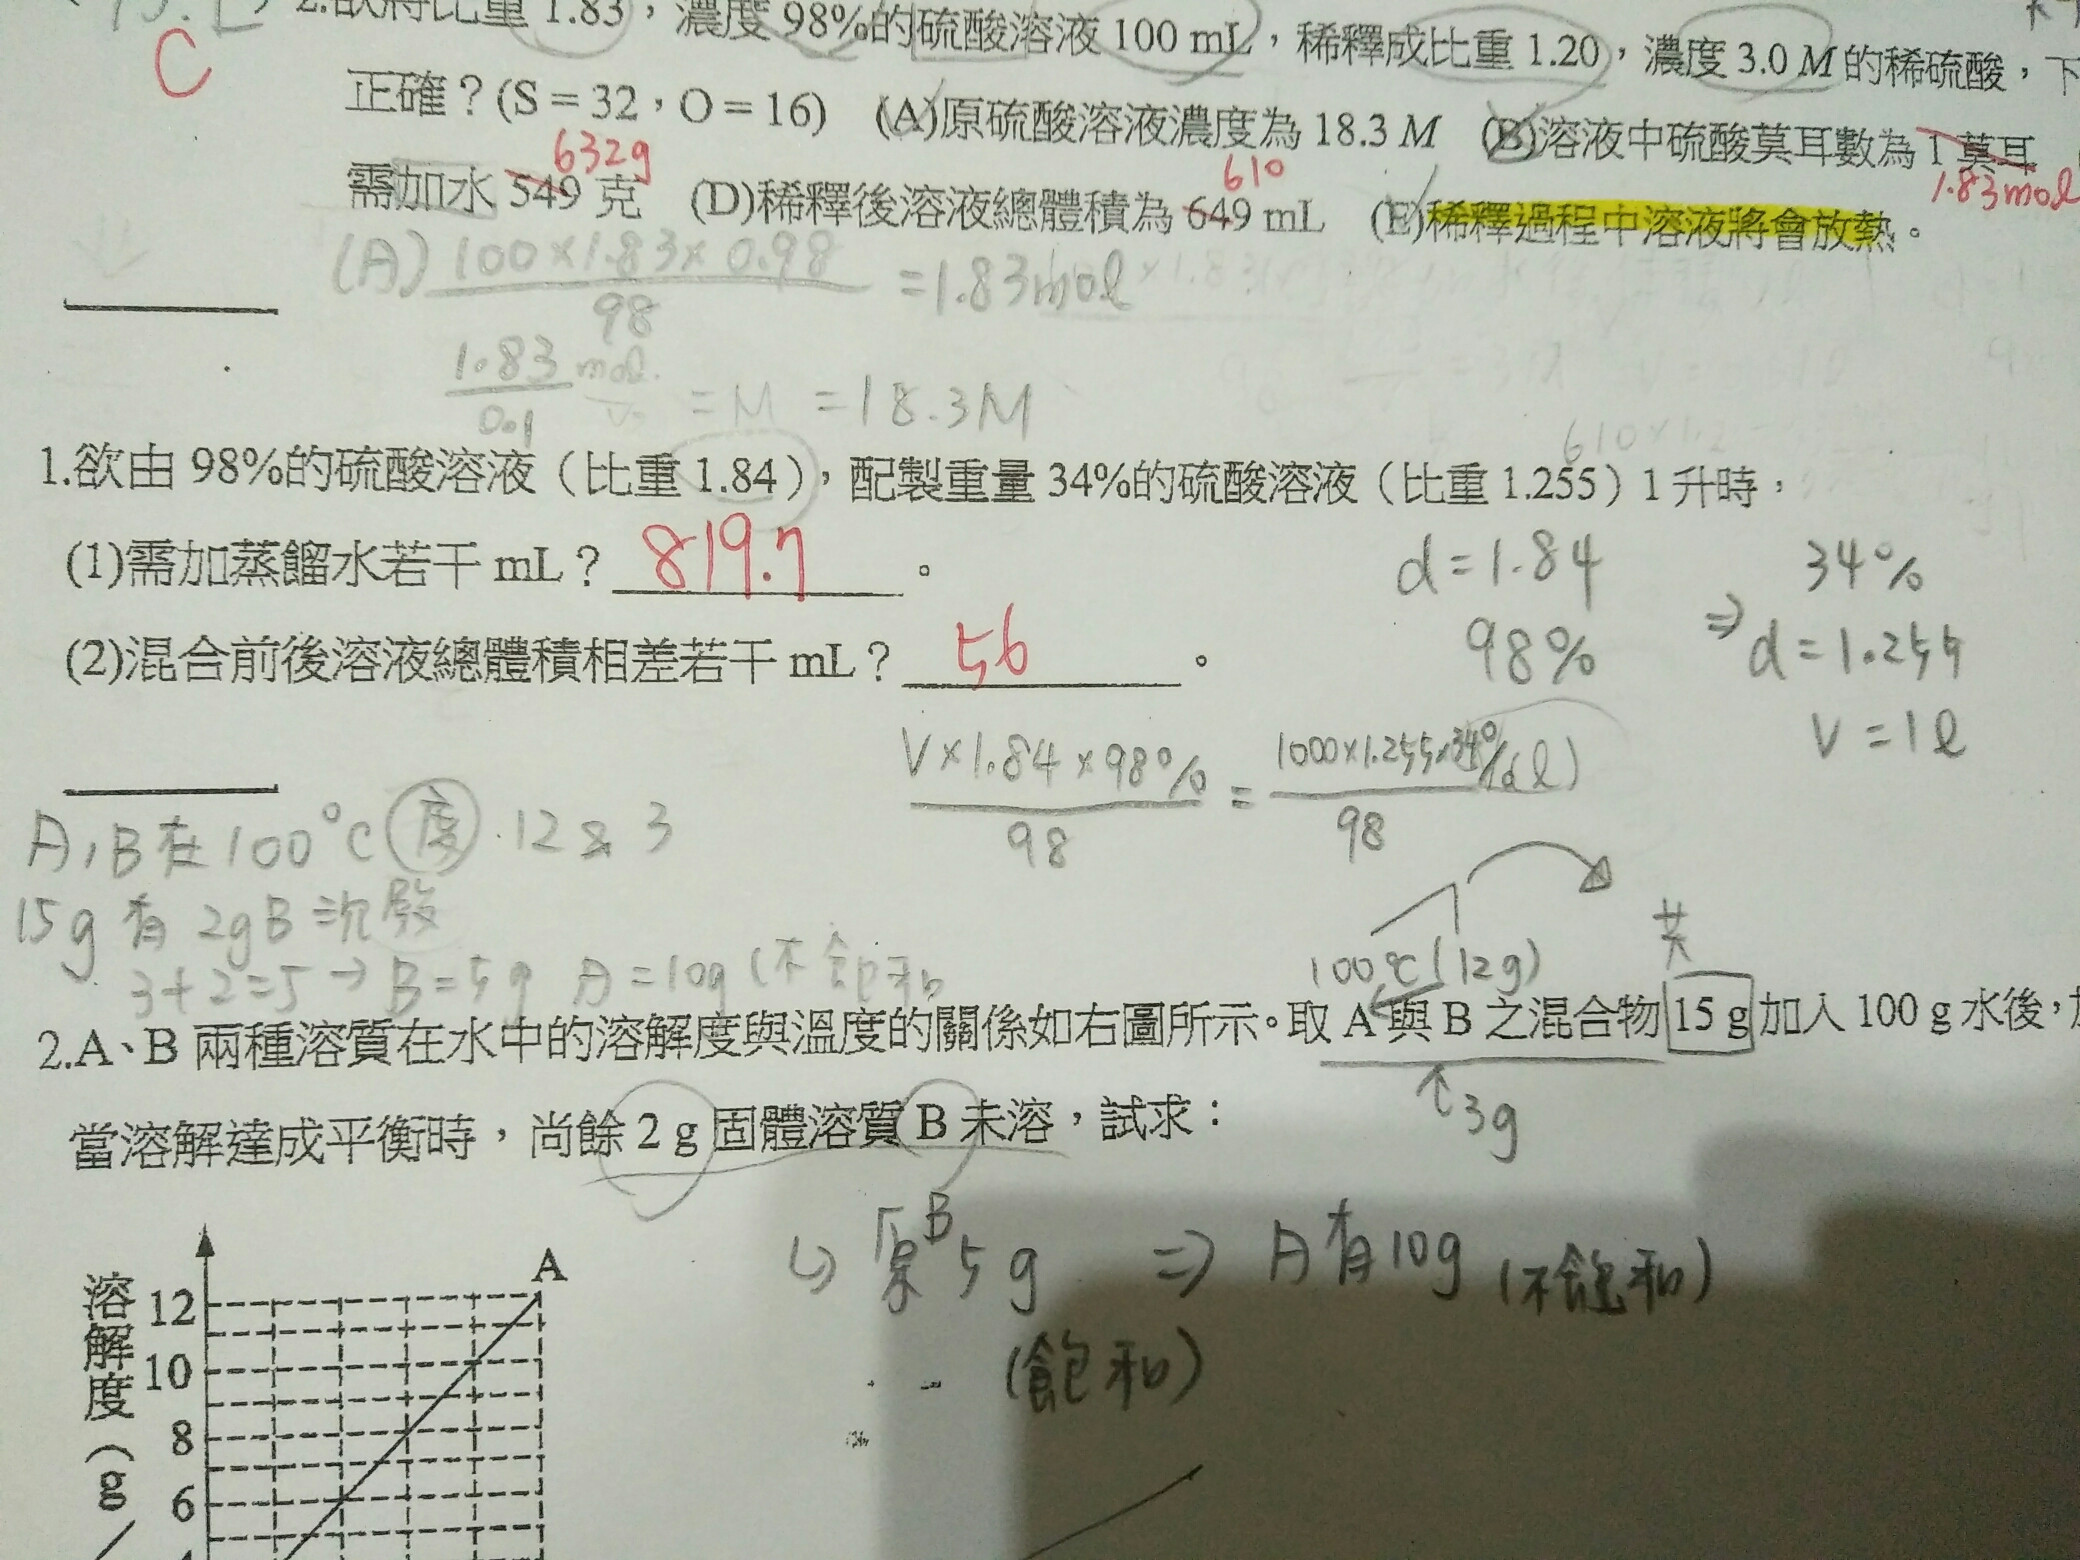 2.欲將比重 1.83,濃度 98%的硫酸溶液 100 mL,稀釋成比重 1.20,濃度 3.0 M 的稀硫酸,下
C
正確?(S = 32,O = 16) (A)原硫酸溶液濃度為 18.3 M (B)溶液中硫酸莫耳數為 1 莫耳
632g
610
1.83mol
需加水 549 克 (D)稀釋後溶液總體積為 649 mL (E)稀釋過程中溶液將會放熱。
(A) 100×1.83×0.98 / 98 = 1.83mol
1.83 mol / 0.1 = M = 18.3M
610×1.2
1.欲由 98%的硫酸溶液(比重 1.84),配製重量 34%的硫酸溶液(比重 1.255)1 升時,
(1)需加蒸餾水若干 mL? 819.7 。
d=1.84 34%
(2)混合前後溶液總體積相差若干 mL? 56 。
98% ⇒ d=1.255
V=1l
V×1.84×98% / 98 = 1000×1.255×34% / 98
A,B在100°C 度 12 & 3
15g 有 2gB 沉殿
3+2=5→B=5g A=10g(不飽和
100°C(12g)
共
2.A、B 兩種溶質在水中的溶解度與溫度的關係如右圖所示。取 A 與 B 之混合物 15 g 加入 100 g 水後,
↑3g
當溶解達成平衡時,尚餘 2 g 固體溶質 B 未溶,試求:
原B 5g ⇒ A有10g (不飽和)
(飽和)
A
溶解度(g/
12
10
8
6
4